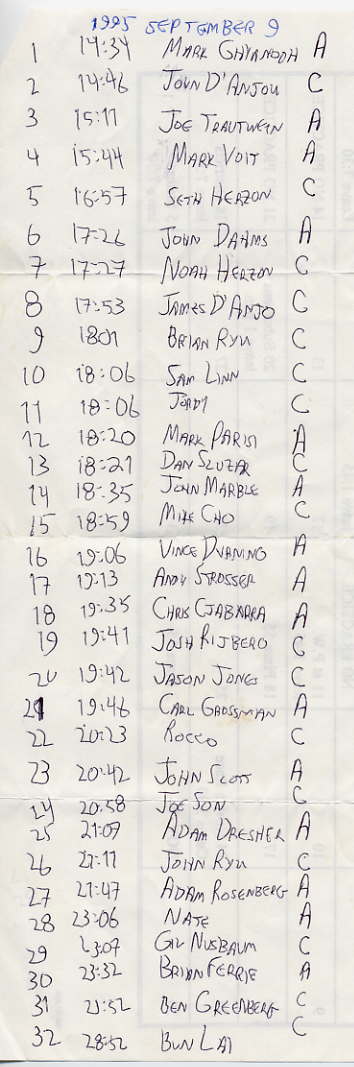 1995 SEPTEMBER 9
1 14:34 MARK GHYANODH A
2 14:46 JOHN D'ANJOU C
3 15:11 JOE TRAUTWEIN A
4 15:44 MARK VOIT A
5 16:57 SETH HERZON C
6 17:26 JOHN DAHMS A
7 17:27 NOAH HERZON C
8 17:53 JAMES D'ANJO C
9 1801 BRIAN RYU C
10 18:06 SAM LINN C
11 18:06 JORDY C
12 18:20 MARK PARISI A
13 18:21 DAN SLUZAR C
14 18:35 JOHN MARBLE A
15 18:59 MIKE CHO C
16 19:06 VINCE A
17 19:13 ANDY STROSSER A
18 19:35 CHRIS A
19 19:41 JOSH C
20 19:42 JASON JONES C
21 19:46 CARL GROSSMAN A
22 20:23 ROCCO C
23 20:42 JOHN SCOTT A
24 20:58 JOE SON C
25 21:07 ADAM DRESHER A
26 21:11 JOHN RYU C
27 21:47 ADAM ROSENBERG A
28 23:06 NATE A
29 23:07 GIL NUSBAUM C
30 23:32 BRIAN FERRIE A
31 BEN GREENBERG C
32 28:52 BUN LAI C